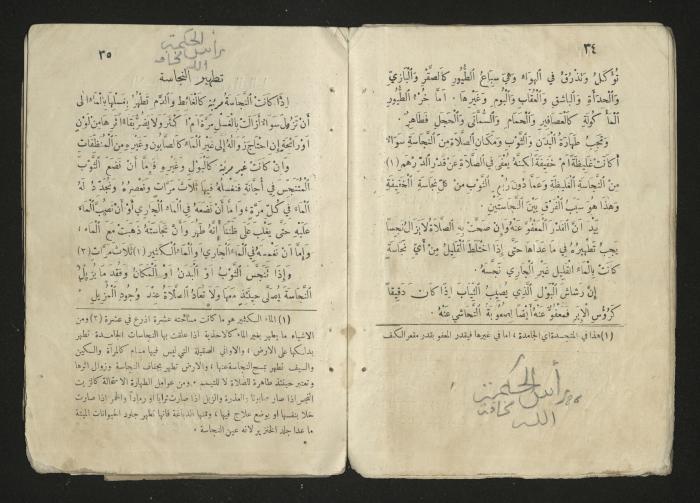 ٣٤
تُؤْكَلُ وَتَذْرُقُ فِي الْهَوَاءِ وَهِيَ سِبَاعُ الطُّيُورِ كَالصَّقْرِ وَالْبَازِي
وَالْحِدَأَةِ وَالْبَاشِقِ وَالْعُقَابِ وَالْبُومِ وَغَيْرِهَا . أَمَّا خُرْءُ الطُّيُورِ
الْمَأْكُولَةِ كَالْعَصَافِيرِ وَالْحَمَامِ وَالسُّمَّانَى وَالْحَجَلِ فَطَاهِرٌ .
وَتَجِبُ طَهَارَةُ الْبَدَنِ وَالثَّوْبِ وَمَكَانِ الصَّلَاةِ مِنَ النَّجَاسَةِ سَوَاءٌ
أَكَانَتْ غَلِيظَةً أَمْ خَفِيفَةً لَكِنَّهُ يُعْفَى فِي الصَّلَاةِ عَنْ قَدْرِ الدِّرْهَمِ (١)
مِنَ النَّجَاسَةِ الْغَلِيظَةِ وَعَمَّا دُونَ رُبْعِ الثَّوْبِ مِنْ كُلِّ نَجَاسَةٍ الْخَفِيفَةِ
وَهَذَا هُوَ سَبَبُ الْفَرْقِ بَيْنَ النَّجَاسَتَيْنِ
بَيْدَ أَنَّ الْقَدْرَ الْمَعْفُوَّ عَنْهُ وَإِنْ صَحَّتْ بِهِ الصَّلَاةُ لَا يَزَالُ نَجِسًا
يَجِبُ تَطْهِيرُهُ فِي مَا عَدَاهَا حَتَّى إِذَا اخْتَلَطَ الْقَلِيلُ مِنْ أَيِّ نَجَاسَةٍ
كَانَتْ بِالْمَاءِ الْقَلِيلِ غَيْرِ الْجَارِي نَجَّسَهُ .
إِنَّ رَشَاشَ الْبَوْلِ الَّذِي يُصِيبُ الثِّيَابَ إِذَا كَانَ دَقِيقًا
كَرُؤُسِ الْإِبَرِ فَمَعْفُوٌّ عَنْهُ أَيْضًا لِصُعُوبَةِ التَّحَاشِي عَنْهُ .
(١) هذا في المتجسدة اي الجامدة ، اما في غيرها فيقدر المعفو بقدر مقعر الكف
رأس الحكمة
مخافة
الله
٣٥
رأس الحكمة
مخافة
الله
تطهير النجاسة
إِذَا كَانَتِ النَّجَاسَةُ مَرْئِيَّةً كَالْغَائِطِ وَالدَّمِ تَطْهُرُ بِغَسْلِهَا بِالْمَاءِ إِلَى
أَنْ تَزُولَ سَوَاءٌ أَزَالَتْ بِالْغَسْلِ مَرَّةً أَمْ أَكْثَرَ وَلَا يَضُرُّ بَقَاءُ أَثَرِهَا مِنْ لَوْنٍ
أَوْ رَائِحَةٍ إِنِ احْتَاجَ زَوَالُهُ إِلَى غَيْرِ الْمَاءِ كَالصَّابُونِ وَغَيْرِهِ مِنَ الْمُنَظِّفَاتِ
وَإِنْ كَانَتْ غَيْرَ مَرْئِيَّةٍ كَالْبَوْلِ وَغَيْرِهِ فَإِمَّا أَنْ نَضَعَ الثَّوْبَ
الْمُتَنَجِّسَ فِي إِجَّانَةٍ فَنَغْسِلُهُ فِيهَا ثَلَاثَ مَرَّاتٍ وَنَعْصِرُهُ وَنُجَدِّدُ لَهُ
الْمَاءَ فِي كُلِّ مَرَّةٍ ، وَإِمَّا أَنْ نَضَعَهُ فِي الْمَاءِ الْجَارِي أَوْ أَنْ نَصُبَّ الْمَاءَ
عَلَيْهِ حَتَّى يَغْلِبَ عَلَى ظَنِّنَا أَنَّهُ طَهُرَ وَأَنَّ نَجَاسَتَهُ ذَهَبَتْ مَعَ الْمَاءِ ،
وَإِمَّا أَنْ نَغْمِسَهُ فِي الْمَاءِ الْجَارِي أَوِ الْمَاءِ الْكَثِيرِ (١) ثَلَاثَ مَرَّاتٍ (٢)
وَإِذَا تَنَجَّسَ الثَّوْبُ أَوِ الْبَدَنُ أَوِ الْمَكَانُ وَفُقِدَ مَا يُزِيلُ
النَّجَاسَةَ يُصَلَّى حِينَئِذٍ مَعَهَا وَلَا تُعَادُ الصَّلَاةُ عِنْدَ وُجُودِ الْمُزِيلِ
(١) الماء الكثير هو ما كانت مساحته عشرة اذرع في عشرة (٢) ومن
الاشياء ما يطهر بغير الماء كالاحذية اذا علقت بها النجاسات الجامدة تطهر
بدلكها على الارض ، والاواني الصقيلة التي ليس فيها مسام كالمرآة والسكين
والسيف تطهر بمسح النجاسة عنها ، والارض تطهر بجفاف النجاسة وزوال اثرها
وتعتبر حينئذ طاهرة للصلاة لا للتيمم . ومن عوامل الطهارة الاستحالة كالزيت
النجس اذا صار صابونا والعذرة والزبل اذا صارت ترابا او رمادا والخمر اذا صارت
خلا بنفسها او بوضع علاج فيها ، ومنها الدباغة فانها تطهر جلود الحيوانات الميتة
ما عدا جلد الخنزير لانه عين النجاسة .